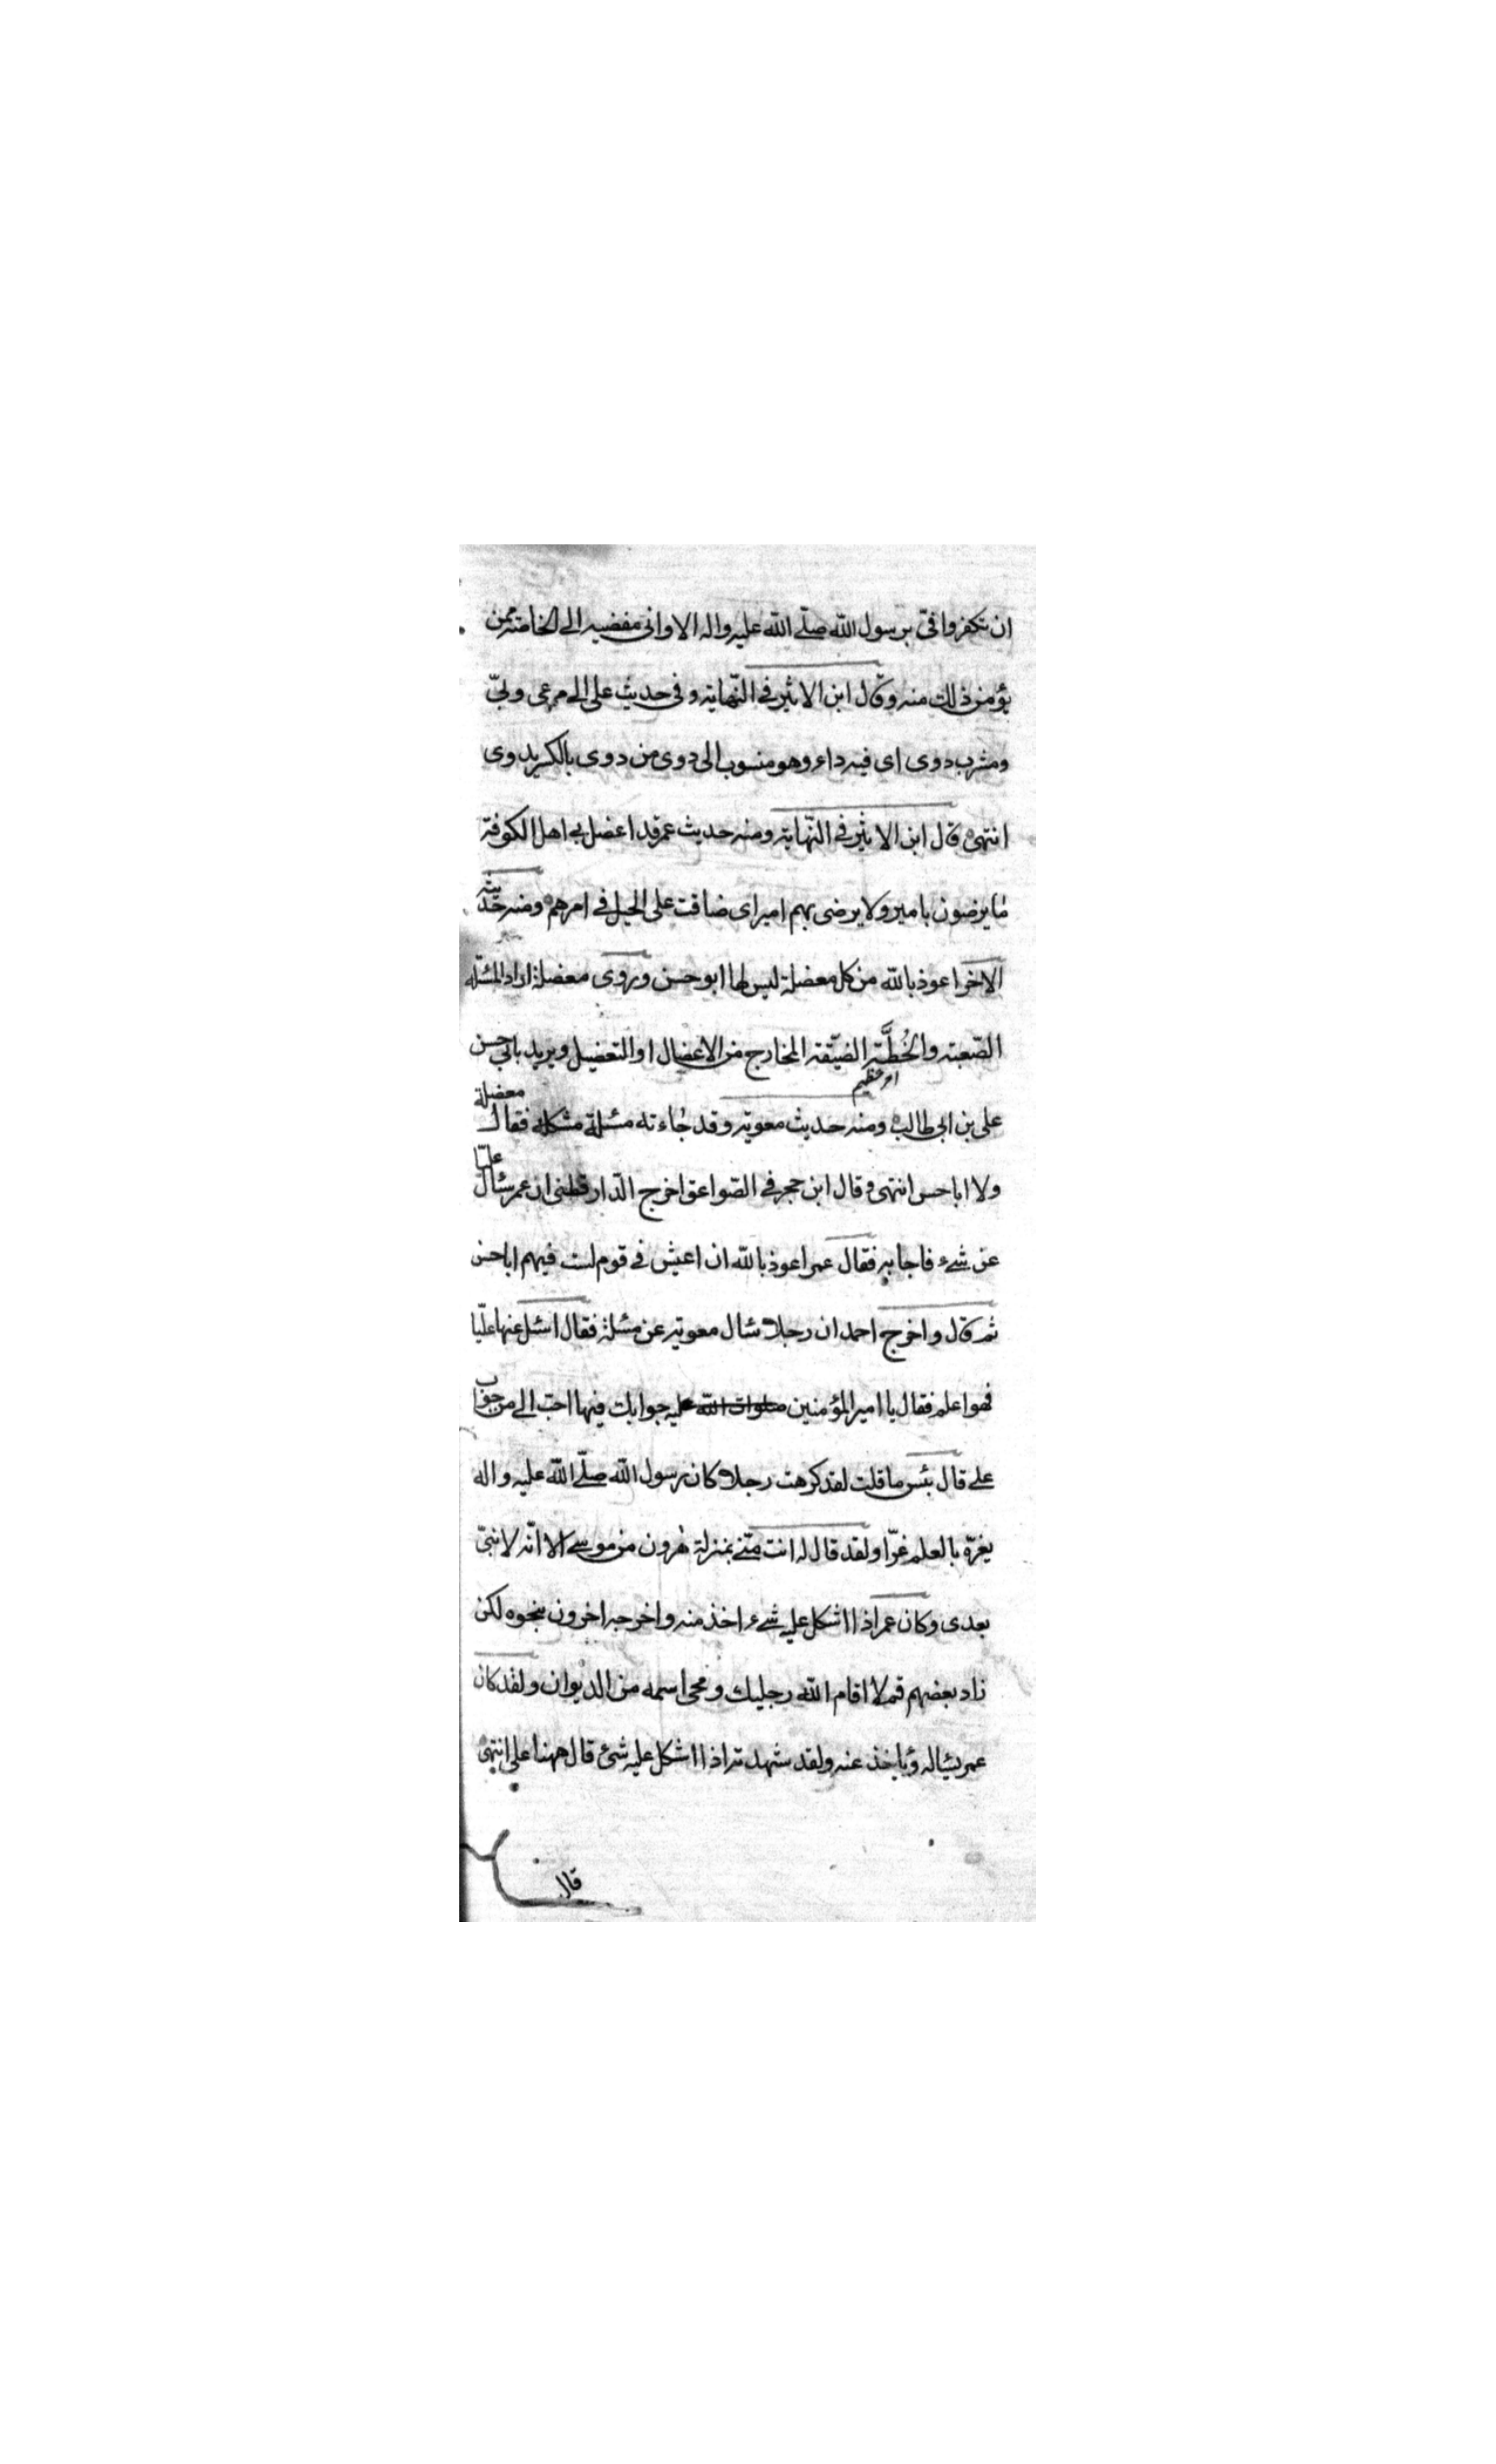 ان تكفروا فيّ برسول الله صلّى الله عليه واله الا وانى مفضيه الى الخاصة ممن
يؤمن ذلك منه وقال ابن الاثير فى النّهاية وفى حديث على الى مرعى وبىّ
ومشرب دوى اى فيه داء وهو منسوب الى دوى من دوى بالكسر يدوى
انتهى قال ابن الاثير فى النّهاية ومنه حديث عمر قد اعضل بى اهل الكوفة
ما يرضون بامير ولا يرضى بهم امير اى ضاقت على الحيل فى امرهم ومنه حديثه
الاخر اعوذ بالله من كل معضلة ليس لها ابو حسن وروى معضلة اراد المسئلة
الصّعبة والخُطَّة الضيّقة المخارج من الاعضال او التعضيل ويريد بابى حسن
امر عظيم
معضلة
على بن ابى طالب ومنه حديث معوية وقد جاءته مسئلة مشكلة فقال
ولا ابا حسن انتهى وقال ابن حجر فى الصّواعق اخرج الدّارقطنى ان عمر سئال عليّا
عن شىء فاجابه فقال عمر اعوذ بالله ان اعيش فى قوم لست فيهم ابا حسن
ثم قال واخرج احمد ان رجلا سئال معوية عن مسئلة فقال اسئل عنها عليّا
فهو اعلم فقال يا امير المؤمنين صلوات الله عليه جوابك فيها احبّ الى من جواب
على قال بئس ما قلت لقد كرهت رجلا كان رسول الله صلّى الله عليه واله
يغرّه بالعلم غرّا ولقد قال له انت منّى بمنزلة هرون من موسى الا انّه لا نبىّ
بعدى وكان عمر اذا اشكل عليه شىء اخذ منه واخرجه اخرون بنحوه لكن
زاد بعضهم قم لا اقام الله رجليك ومحى اسمه من الديوان ولقد كان
عمر يسئاله وياخذ عنه ولقد شهدته اذا اشكل عليه شئ قال ههنا على انتهى
قال